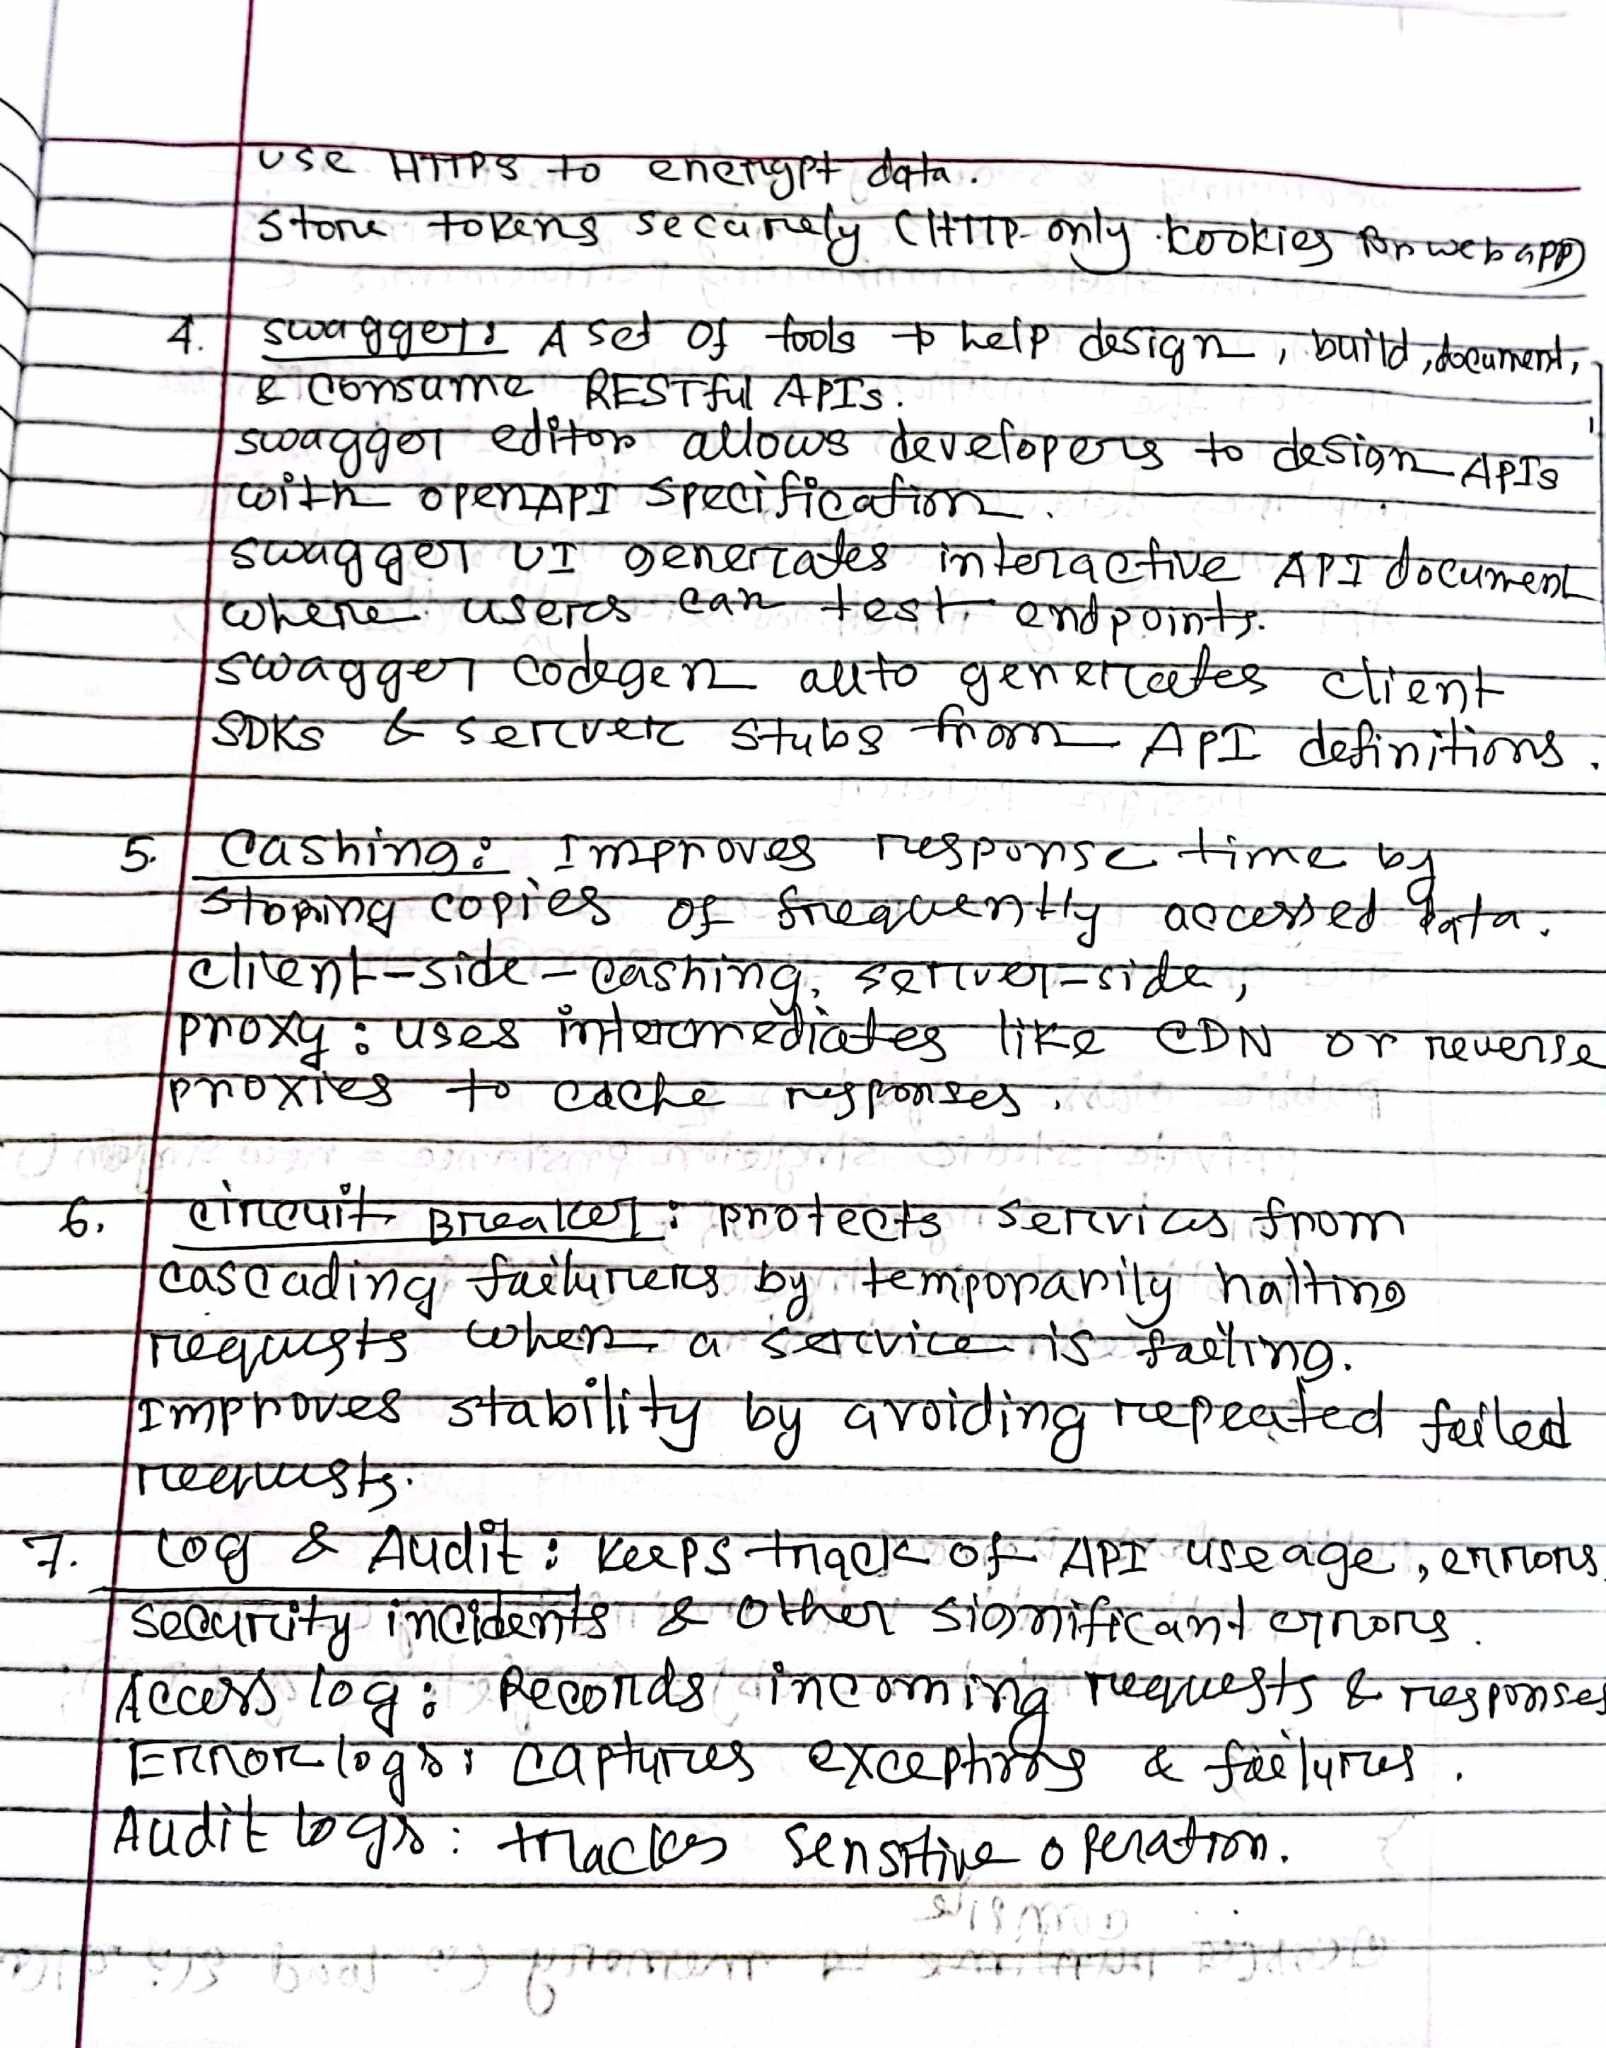 use HTTPS to encrypt data.
store tokens securely (HTTP-only kookies for web app)
4. swagger: A set of tools to help design, build, document,
& consume RESTful APIs.
swagger editor allows developers to design APIs
with openAPI specification.
swagger UI generates interactive API document
where users can test endpoints.
swagger codegen auto generates client
SDKs & server stubs from API definitions.
5. Cashing: Improves response time by
storing copies of frequently accessed data.
client-side-cashing, server-side,
proxy: uses intermediates like CDN or reverse
proxies to cache responses.
6. circuit Breaker: protects services from
cascading failurers by temporarily halting
requests when a service is failing.
Improves stability by avoiding repeated failed
requests.
7. Log & Audit: keeps track of API useage, errors,
security incidents & other significant errors.
Access log: Records incoming requests & responses
Error logs: captures exceptions & failures.
Audit logs: tracks sensitive operation.